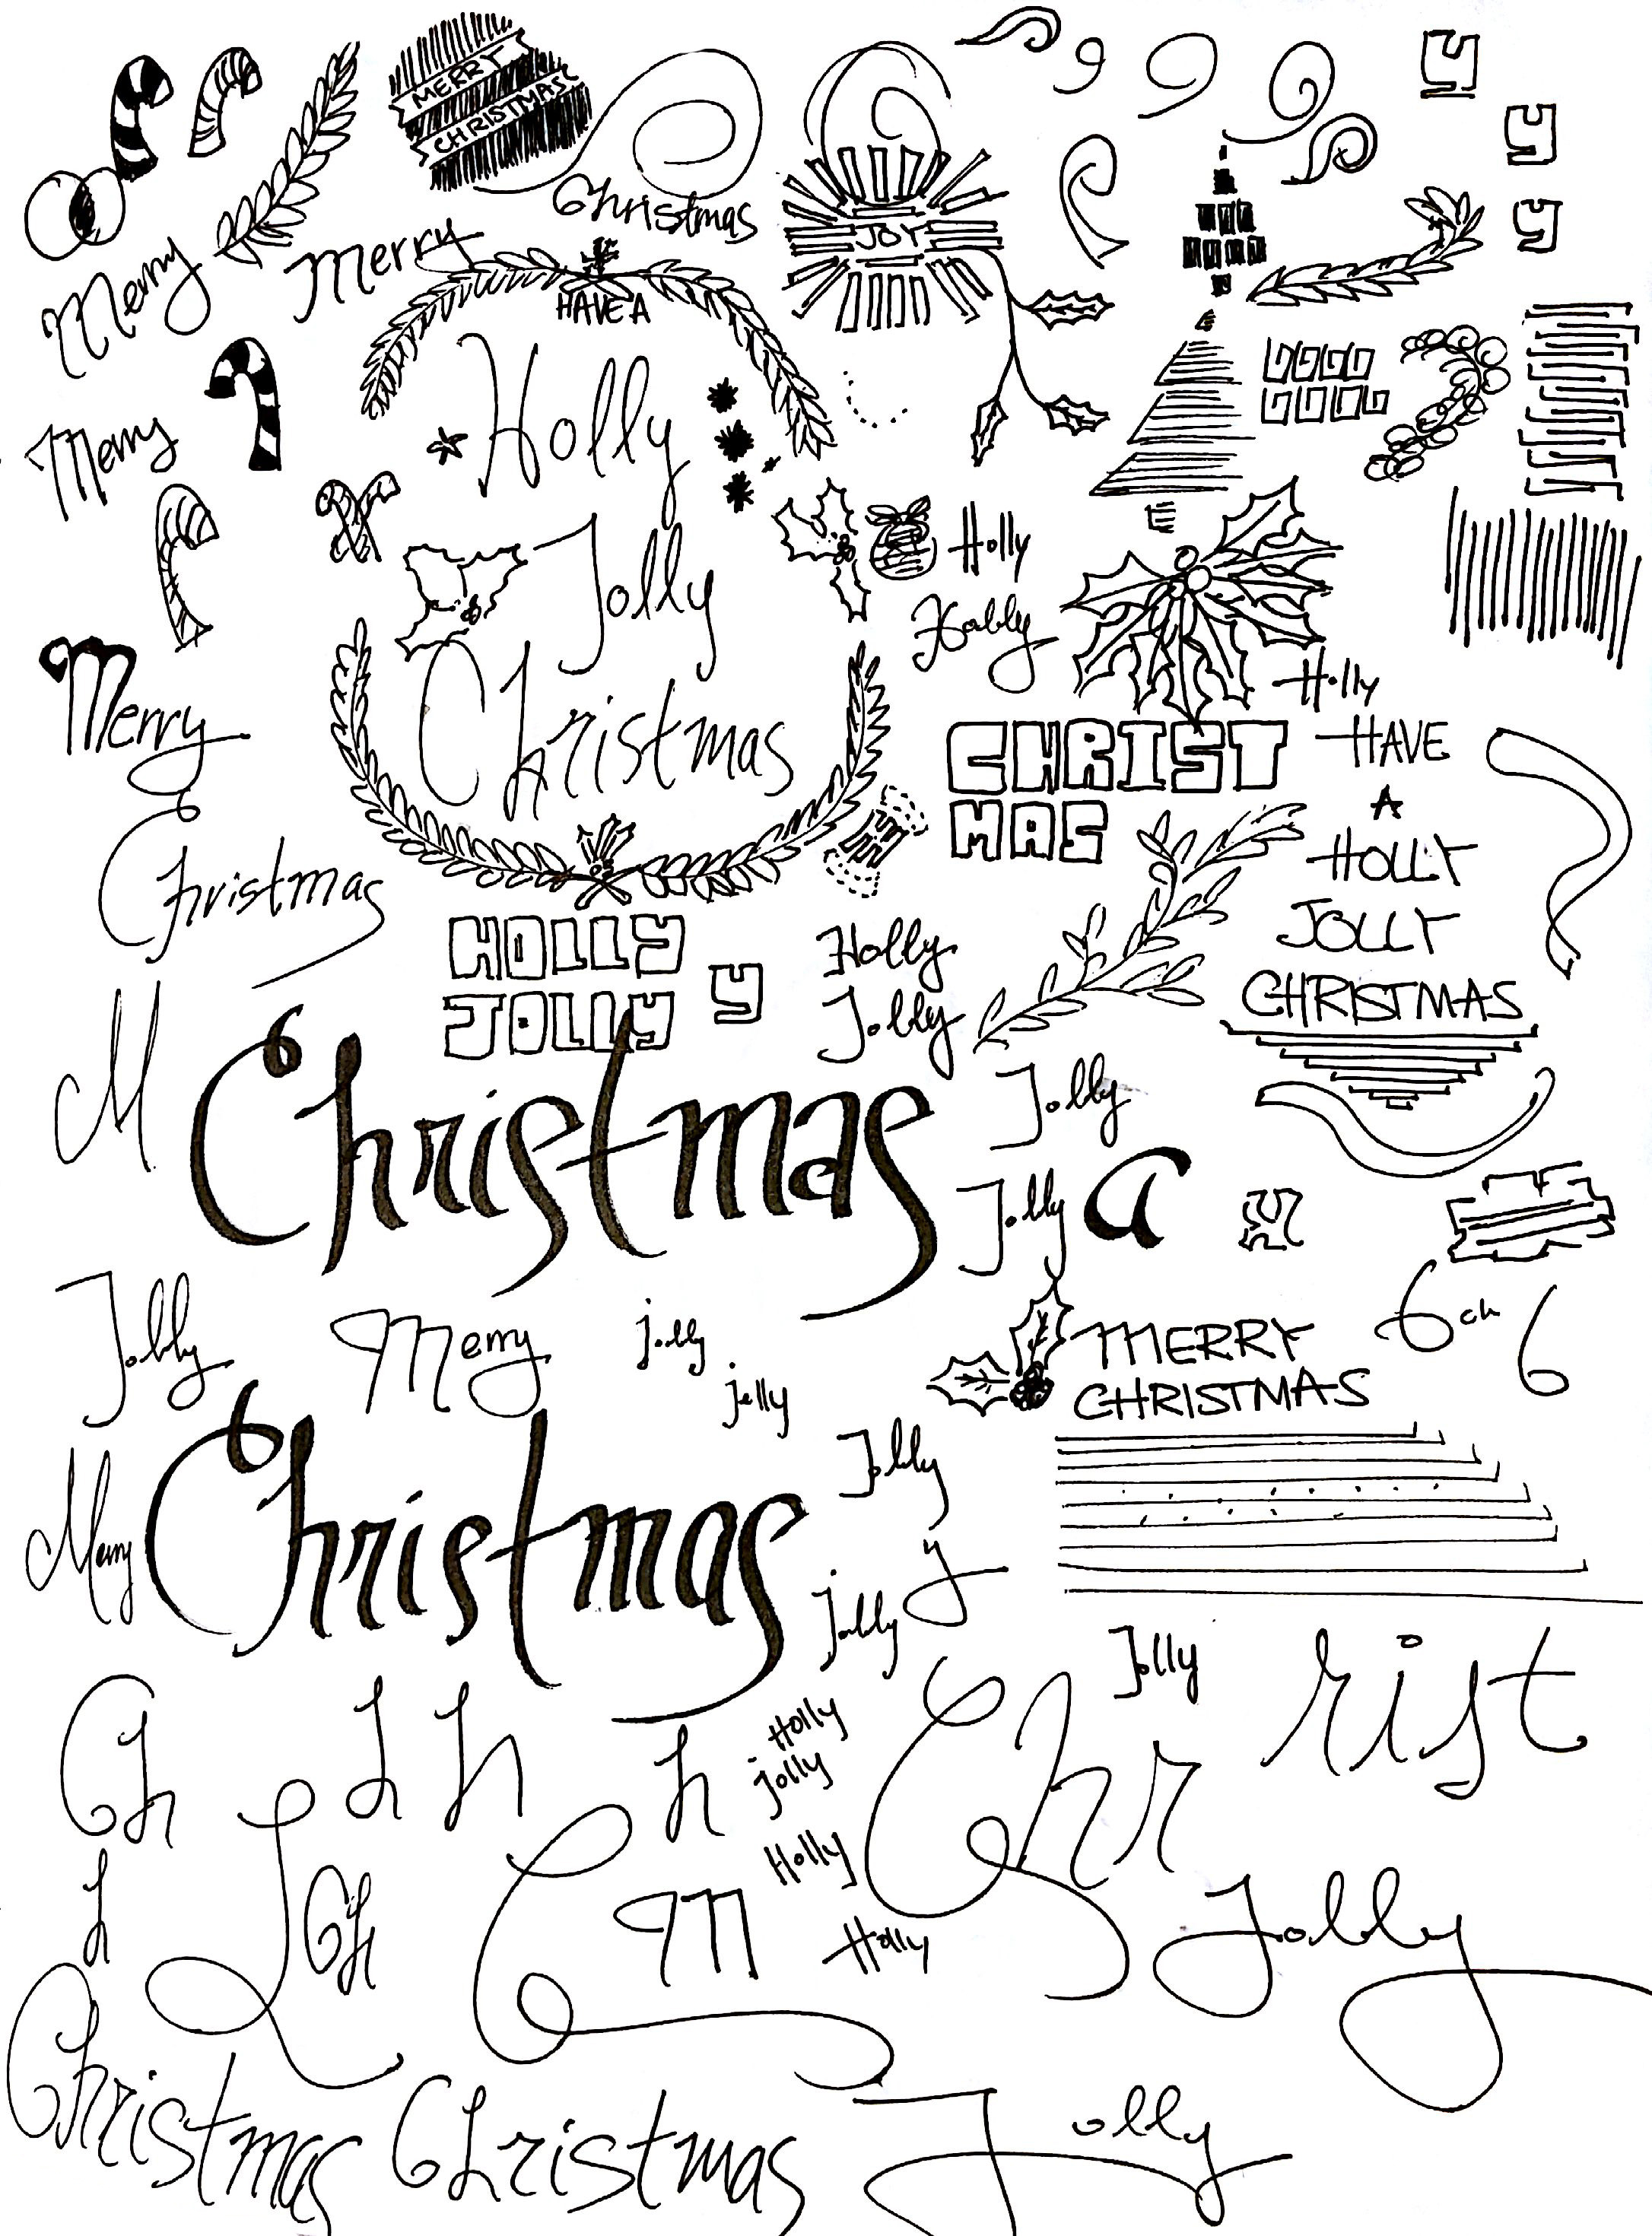 MERRY
CHRISTMAS
y
y
y
Christmas
JOY
Merry
Merry
HAVE A
Holly
Jolly
Christmas
Merry
Holly
Holly
Holly
Merry
Christmas
CHRIST
MAS
HAVE
A
HOLLY
JOLLY
CHRISTMAS
HOLLY
JOLLY
y
Holly
Jolly
M
Christmas
Jolly
Jolly
a
Jolly
Merry
jolly
jolly
MERRY
CHRISTMAS
6 ch 6
Merry
Christmas
Jolly
y
Jolly
Jolly
Christ
Ch h h h
Holly
jolly
Holly
h
Ch
C
M
Holly
Jolly
Christmas
Christmas
Jolly